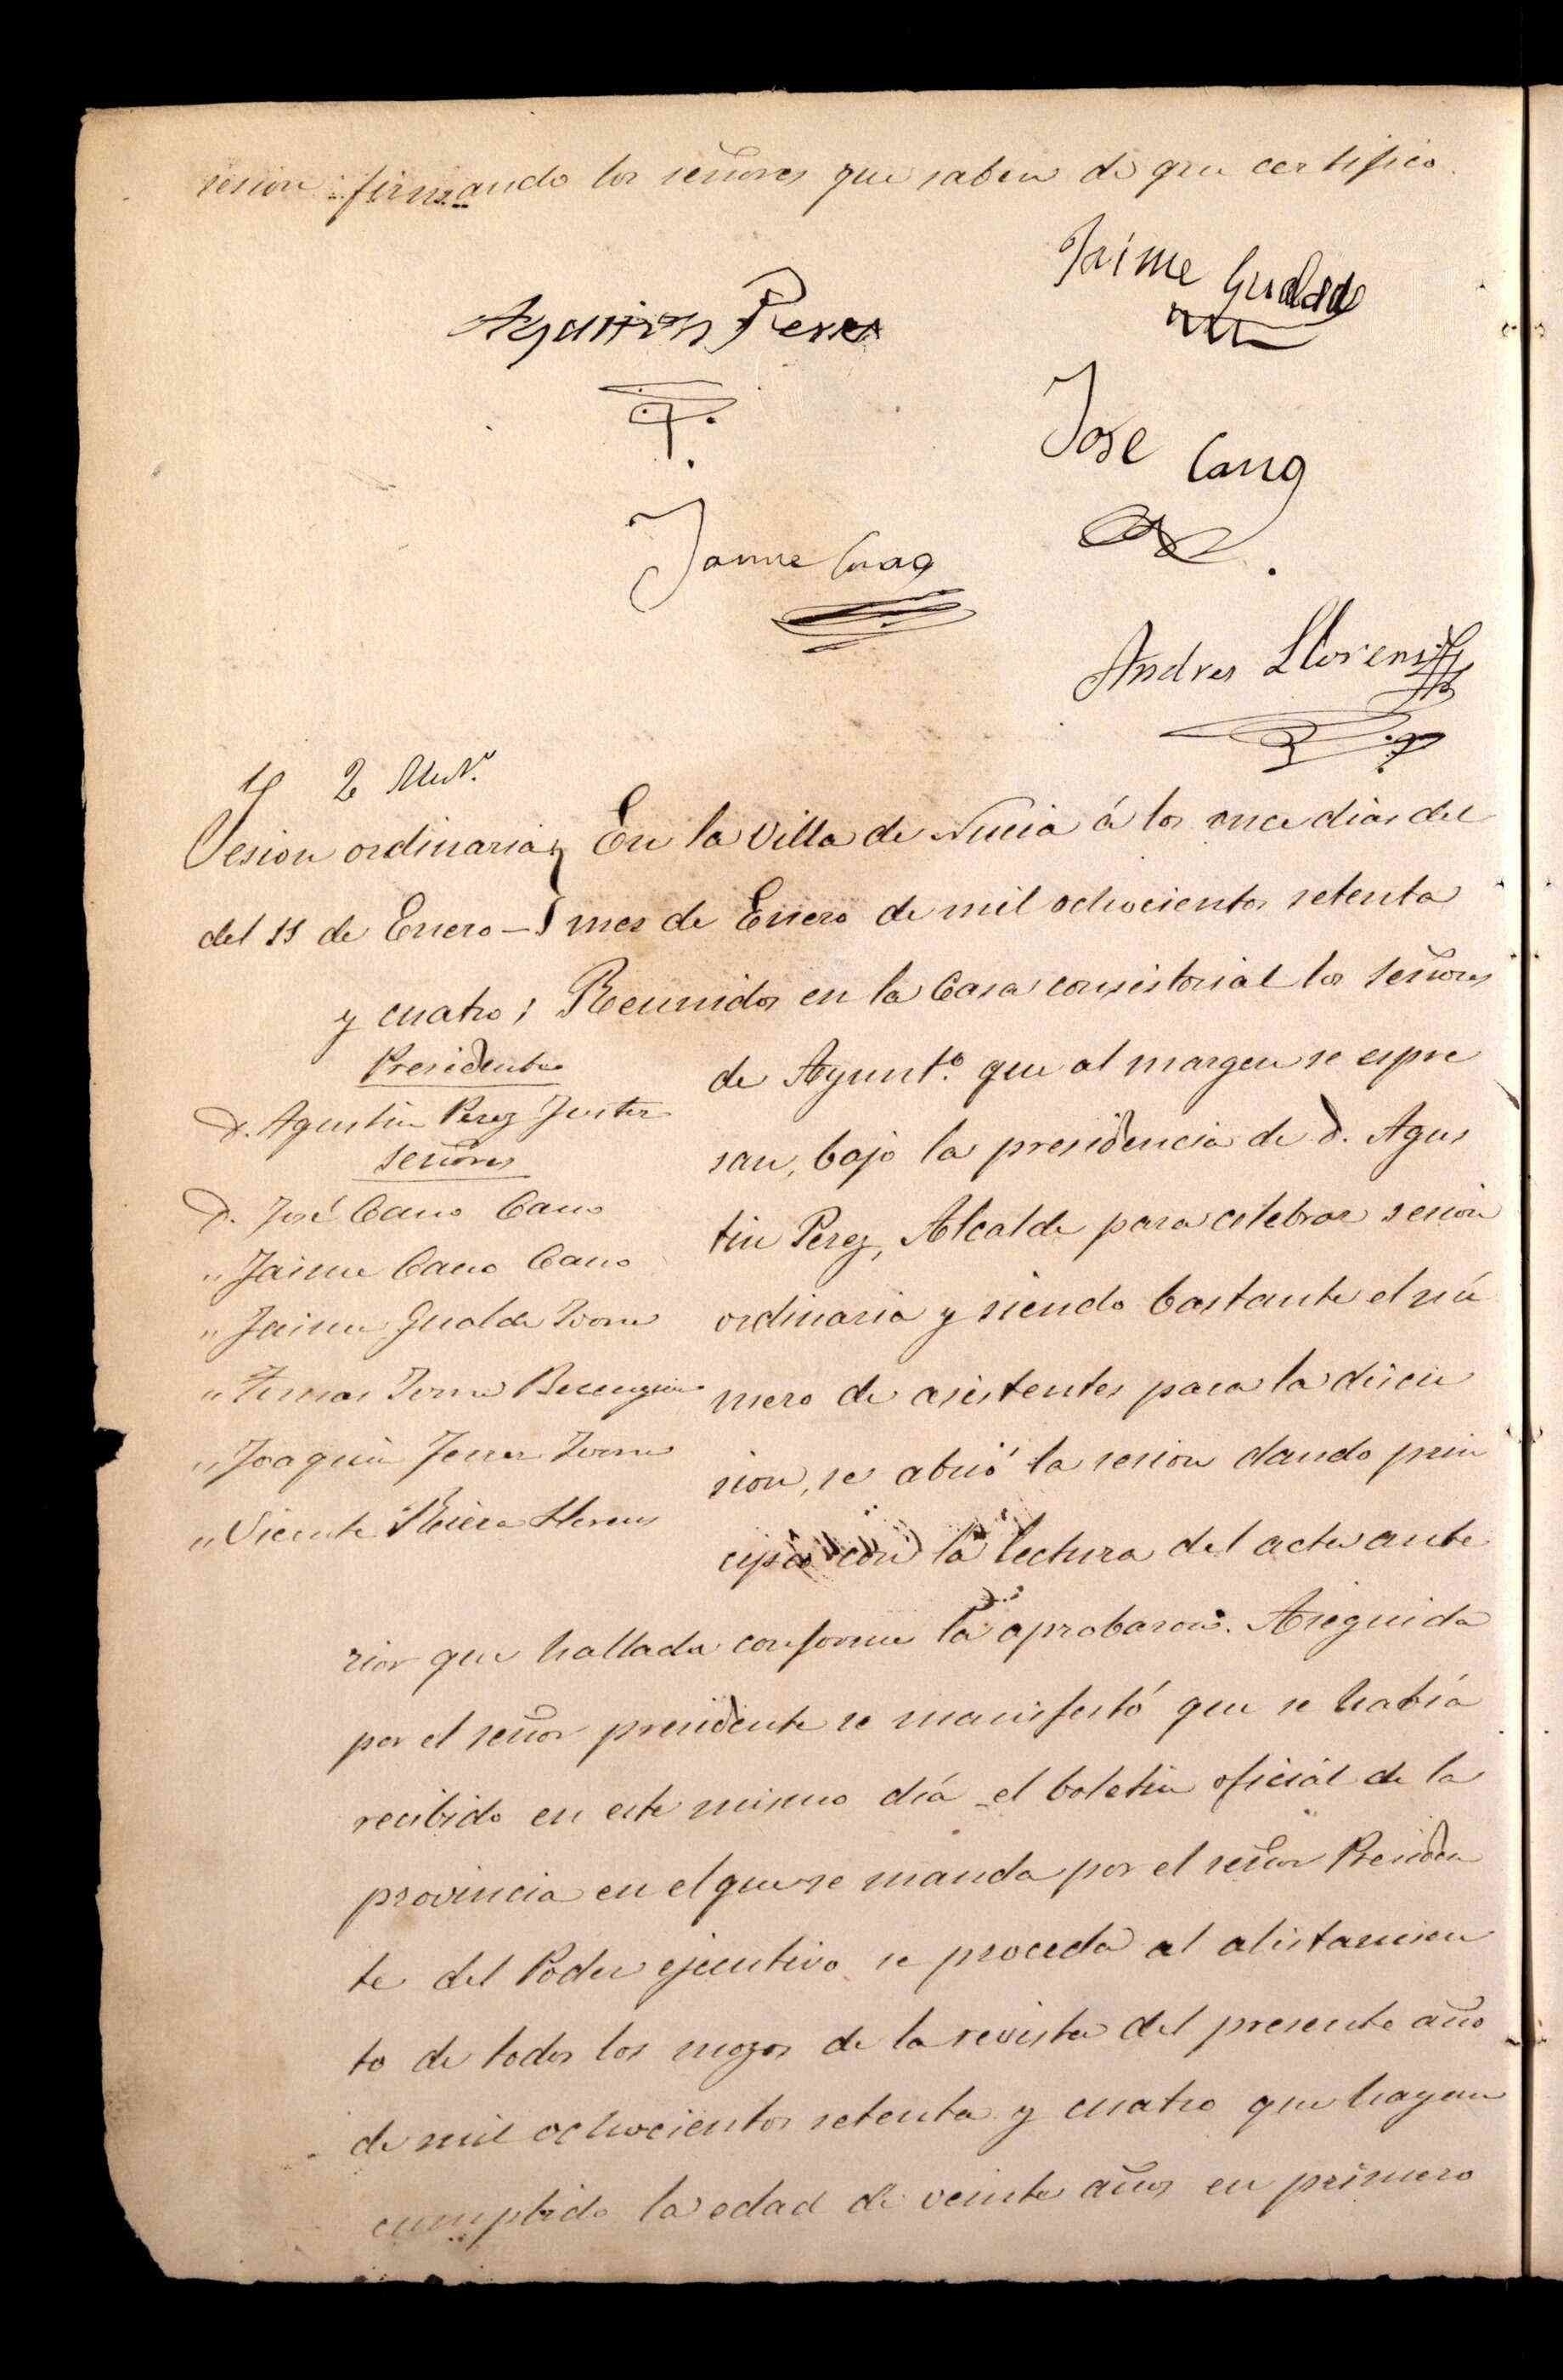 sesion firmando los señores que saben de que certifico.
Jaime Gualde
Agustin Perez
Jose Cano
Jaime Cano
Andres Llorens
2
Sesion ordinaria
del 11 de Enero
En la Villa de Nucia á los once dias del
mes de Enero de mil ochocientos setenta
y cuatro; Reunidos en la Casa consistorial los señores
Presidente
D. Agustin Perez Juster
Señores
D. José Cano Cano
" Jaime Cano Cano
" Jaime Gualde Ivorra
" Tomas Ivorra Berenguer
" Joaquin Ferrer Ivorra
" Vicente Llorens
de Ayunt.º que al margen se espre
san, bajo la presidencia de D. Agus
tin Perez, Alcalde para celebrar sesion
ordinaria y siendo bastante el nú
mero de asistentes para la discu
sion, se abrió la sesion dando prin
cipio con la lectura del acta ante
rior que hallada conforme la aprobaron. Aseguida
por el señor presidente se manifestó que se había
recibido en este mismo día el boletin oficial de la
provincia en el que se manda por el señor Presiden
te del Poder ejecutivo se proceda al alistamien
to de todos los mozos de la revista del presente año
de mil ochocientos setenta y cuatro que hayan
cumplido la edad de veinte años en primero